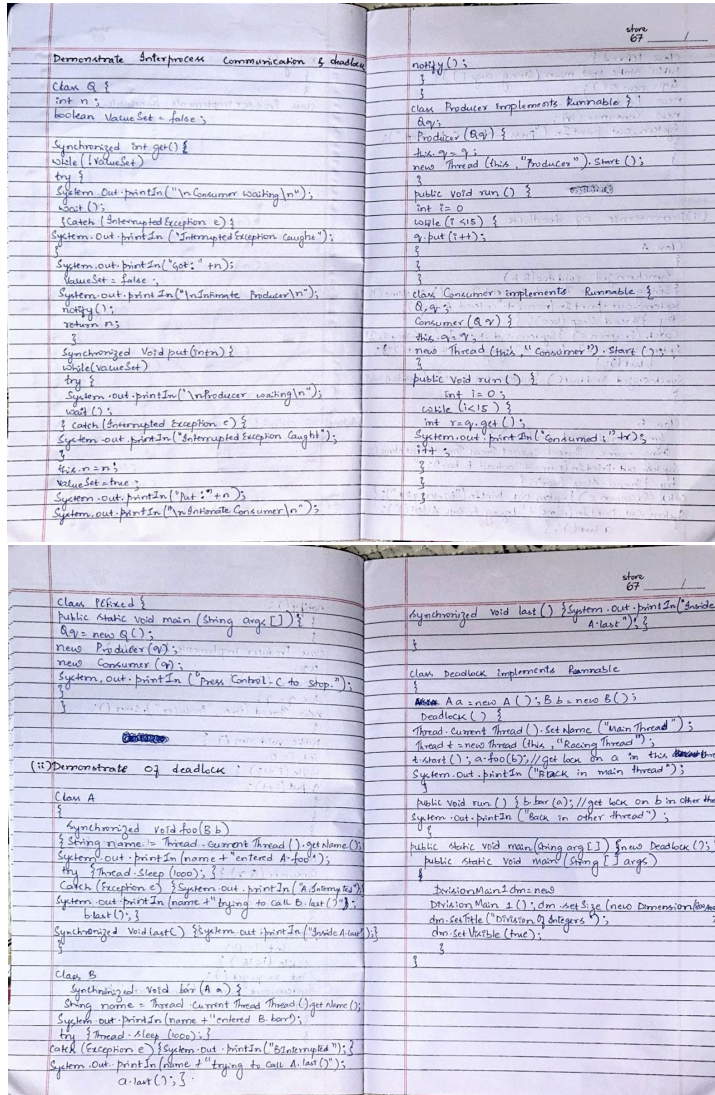 Demonstrate Interprocess Communication & deadlock
Class Q {
int n ;
boolean ValueSet = false ;
Synchronized int get() {
while (!ValueSet)
try {
System.Out.printIn("\nConsumer Waiting\n");
wait ();
} Catch (Interrupted Exception e) {
System.Out.printIn("Interrupted Exception Caught");
}
System.out.printIn("Got:" +n);
ValueSet = false ;
System.out.printIn("\nIntimate Producer\n");
notify();
return n;
}
Synchronized Void put(intn) {
while(ValueSet)
try {
System.out.printIn("\nProducer waiting\n");
wait ();
} catch (Interrupted Exception e) {
System.out.printIn("Interrupted Exception Caught");
}
this.n=n;
ValueSet=true ;
System.out.printIn("Put :"+n);
System.out.printIn("\nIntimate Consumer\n");
store
67
notify();
}
}
class Producer implements Runnable {
Qq;
Producer (Qq) {
this.q = q;
new Thread (this, "Producer").Start ();
}
public void run () {
int i = 0
while (i <15) {
q.put (i++);
}
}
}
class Consumer implements Runnable {
Q,q;
Consumer (Q q) {
this.q=q;
new Thread (this, "Consumer").Start ();
}
public void run() {
int i=0;
while (i<15) {
int r=q.get ();
System.out.printIn("Consumed:"+r);
i++ ;
}
}
}
Class PCFixed {
public static void main (String args []) {
Qq = new Q();
new Producer (q);
new Consumer (q);
System.out.printIn ("Press Control-C to Stop.");
}
}
(ii) Demonstrate Of deadlock :
Class A
{
Synchronized void foo(B b)
{ String name = Thread.Current Thread ().getName();
System.out.printIn (name + "entered A.foo");
try {Thread.Sleep (1000); }
Catch (Exception e) {System.out.printIn ("A.Interrupted");}
System.out.printIn (name +"trying to Call B.last ()");
b.last(); }
Synchronized Void last() {System.out.printIn("Inside A.last");}
}
Class B
Synchronized Void bar (A a) {
String name = Thread.Current Thread Thread().getName ();
System.out.printIn (name + "entered B.bar);
try {Thread.sleep (1000); }
catch (Exception e) {System.out.printIn ("BInterrupted"); }
System.out.printIn (name + "trying to Call A.last ()");
a.last (); }
store
67
Synchronized void last () {System.Out.printIn("Inside
A.last"); }
}
Class Deadlock implements Runnable
{
A a = new A (); B b = new B();
Deadlock ( ) {
Thread.Current Thread ().Set Name ("Main Thread");
Thread t = new Thread (this, "Racing Thread");
t.start (); a.foo(b); //get lock on a in this
System.Out.printIn ("Back in main thread");
}
public Void run () { b.bar (a); //get lock on b in other
System.Out.printIn ("Back in other thread") ;
}
public static void main(String arg []) {new Deadlock ();
public Static void main (String [] args)
{
Division Main 1 dm = new
Division Main 1 (); dm.set Size (new Dimension
dm.SetTitle ("Division Of Integers");
dm.Set Visible (true);
}
}